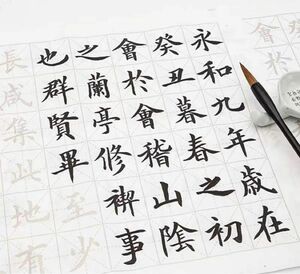 永和九年歲在
癸丑暮春之初
會於會稽山陰
之蘭亭修禊事
也群賢畢至少
長咸集此地有
會於